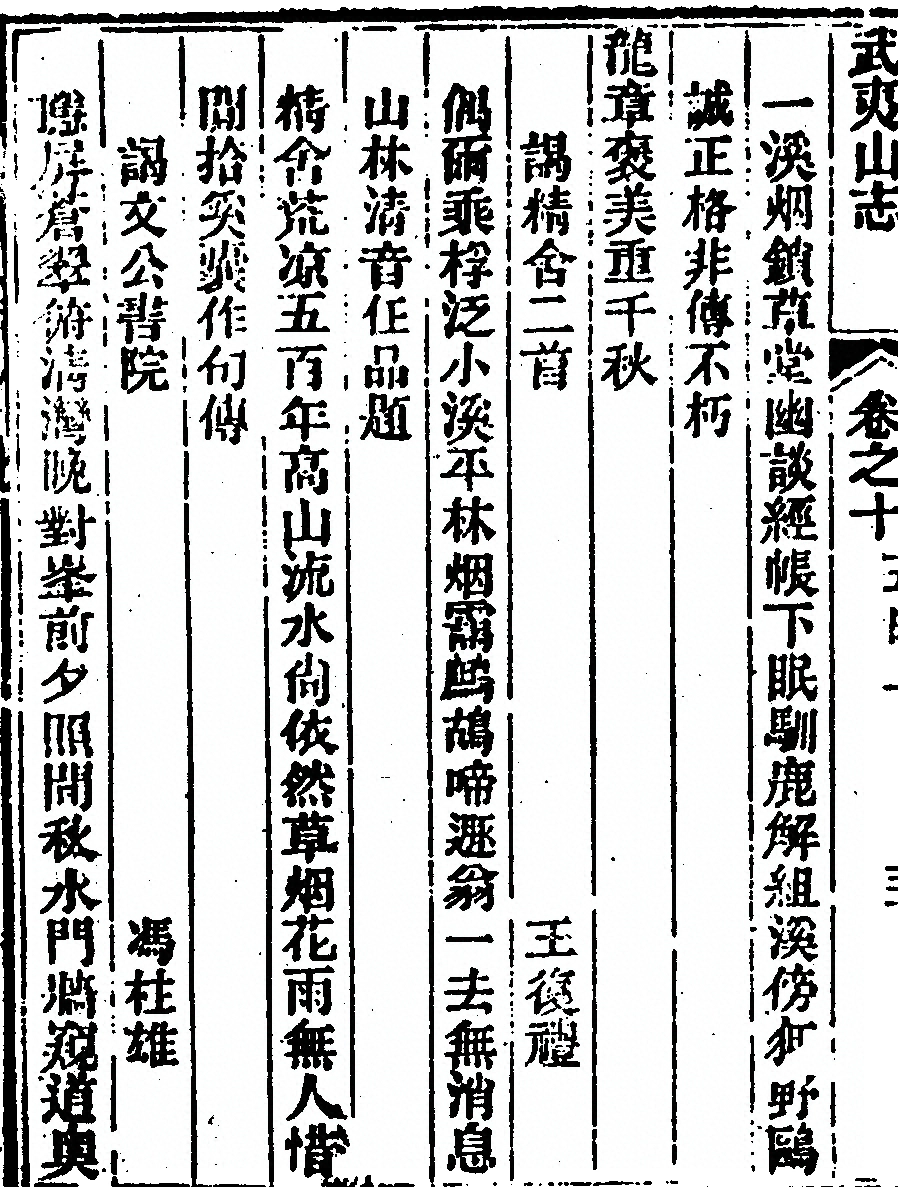 武夷山志 卷之十
一溪烟鎖草堂幽談經帳下眠馴鹿解組溪傍狎野鷗
誠正格非傳不朽
龍章褒美重千秋
謁精舍二首 王復禮
偶爾乘桴泛小溪平林烟靄鷓鴣啼遯翁一去無消息
山林清音任品題
精舍荒凉五百年高山流水尙依然草烟花雨無人惜
閒拾奚囊作句傳
謁文公書院 馮杜雄
聯屏蒼翠俯清灣晚對峯前夕照間秋水門牆窺道奧